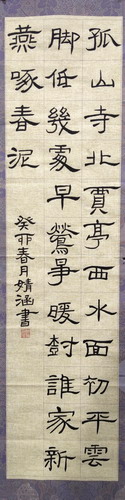 孤山寺北賈亭西水面初平雲
脚低幾處早鶯爭暖樹誰家新
燕啄春泥
癸卯春月婧涵書